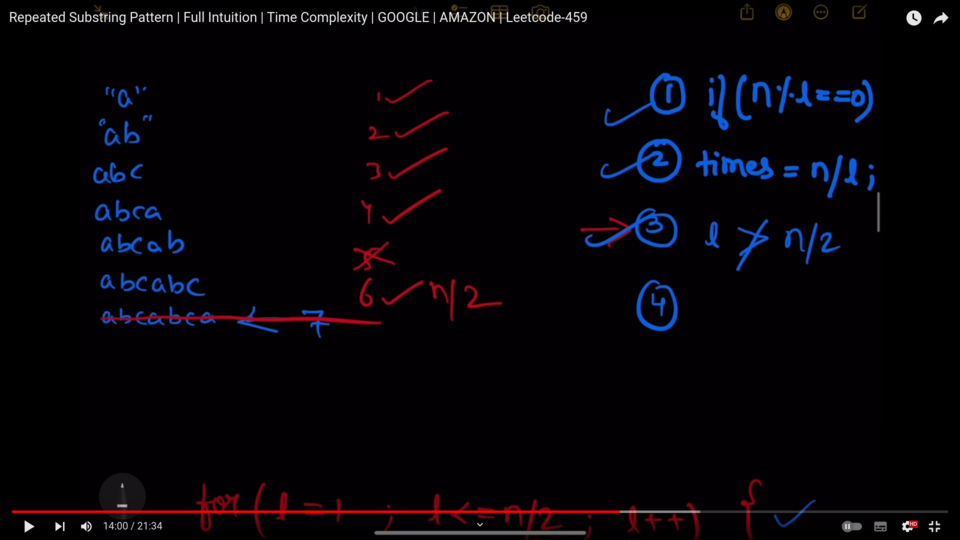 Repeated Substring Pattern | Full Intuition | Time Complexity | GOOGLE | AMAZON | Leetcode-459
"a" 1
"ab" 2
abc 3
abca 4
abcab 5
abcabc 6 n/2
abcabca 7
1 if (n % l == 0)
2 times = n/l;
3 l > n/2
4
for (l = 1 ; l <= n/2 ; l++) {
14:00 / 21:34
HD